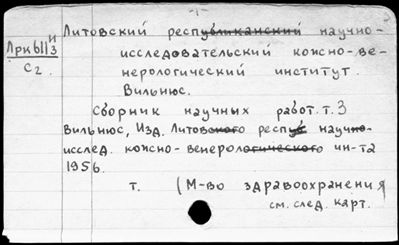 -1-
Литовский республиканский научно-
Лркб II и3
исследовательский кожно-ве-
С2.
нерологический институт.
Вильнюс.
Сборник научных работ. т. 3
Вильнюс, Изд. Литовского респуб научно-
исслед. кожно-венерологического ин-та
1956.
т. (М-во здравоохранения
см. след. карт.